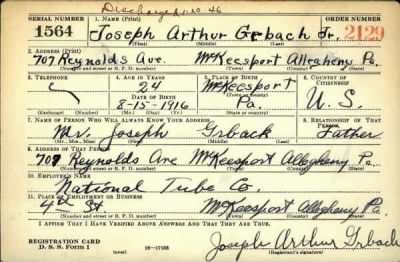 Discharged 1-20-46
SERIAL NUMBER 1. NAME (Print) ORDER NUMBER
1564 Joseph Arthur Grbach Jr. 2129
(First) (Middle) (Last)
2. ADDRESS (Print)
707 Reynolds Ave. McKeesport Allegheny Pa.
(Number and street or R. F. D. number) (Town) (County) (State)
3. TELEPHONE 4. AGE IN YEARS 5. PLACE OF BIRTH 6. COUNTRY OF CITIZENSHIP
24 McKeesport
DATE OF BIRTH (Town or county) U. S.
8-15-1916 Pa.
(Exchange) (Number) (Mo.) (Day) (Yr.) (State or country)
7. NAME OF PERSON WHO WILL ALWAYS KNOW YOUR ADDRESS 8. RELATIONSHIP OF THAT PERSON
Mr. Joseph Grback Father
(Mr., Mrs., Miss) (First) (Middle) (Last)
9. ADDRESS OF THAT PERSON
707 Reynolds Ave McKeesport Allegheny Pa.
(Number and street or R. F. D. number) (Town) (County) (State)
10. EMPLOYER'S NAME
National Tube Co.
11. PLACE OF EMPLOYMENT OR BUSINESS
4th St McKeesport Allegheny Pa.
(Number and street or R. F. D. number) (Town) (County) (State)
I AFFIRM THAT I HAVE VERIFIED ABOVE ANSWERS AND THAT THEY ARE TRUE.
REGISTRATION CARD
D. S. S. Form 1 16-17105 Joseph Arthur Grbach
(Registrant's signature)